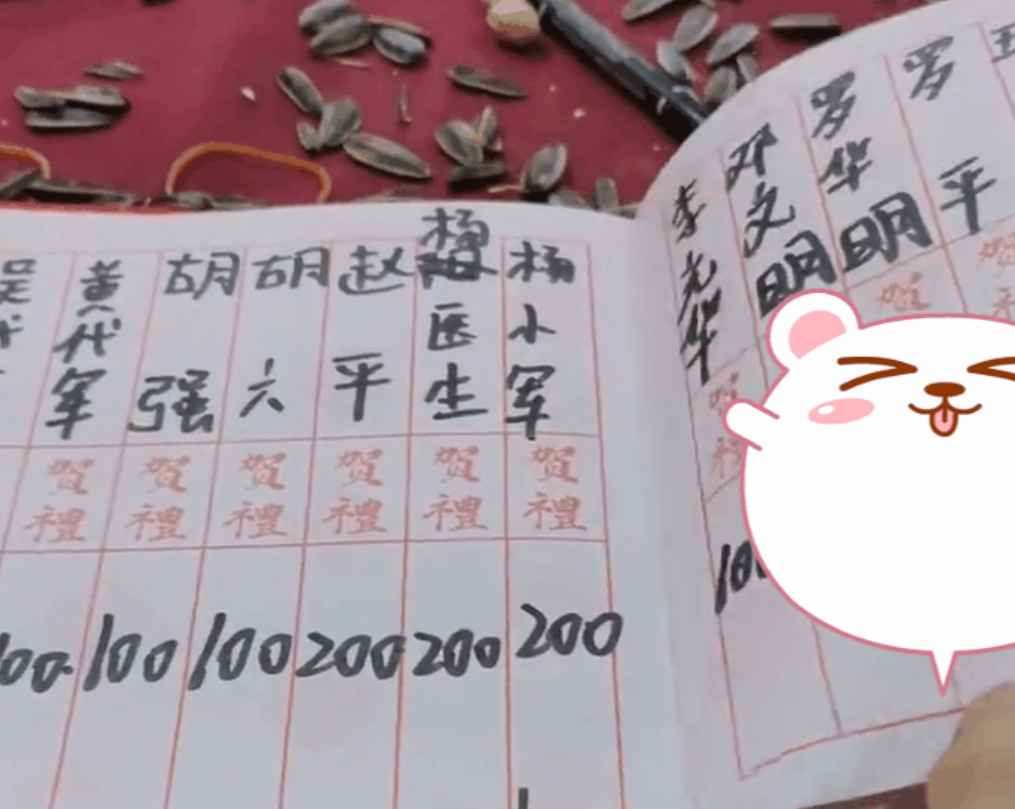 罗平 賀
罗华明 賀
邓文明
李光华
杨小军 賀禮 200
杨医生 賀禮 200
赵平 賀禮 200
胡六 賀禮 100
胡强 賀禮 100
黄代军 賀禮
吴代